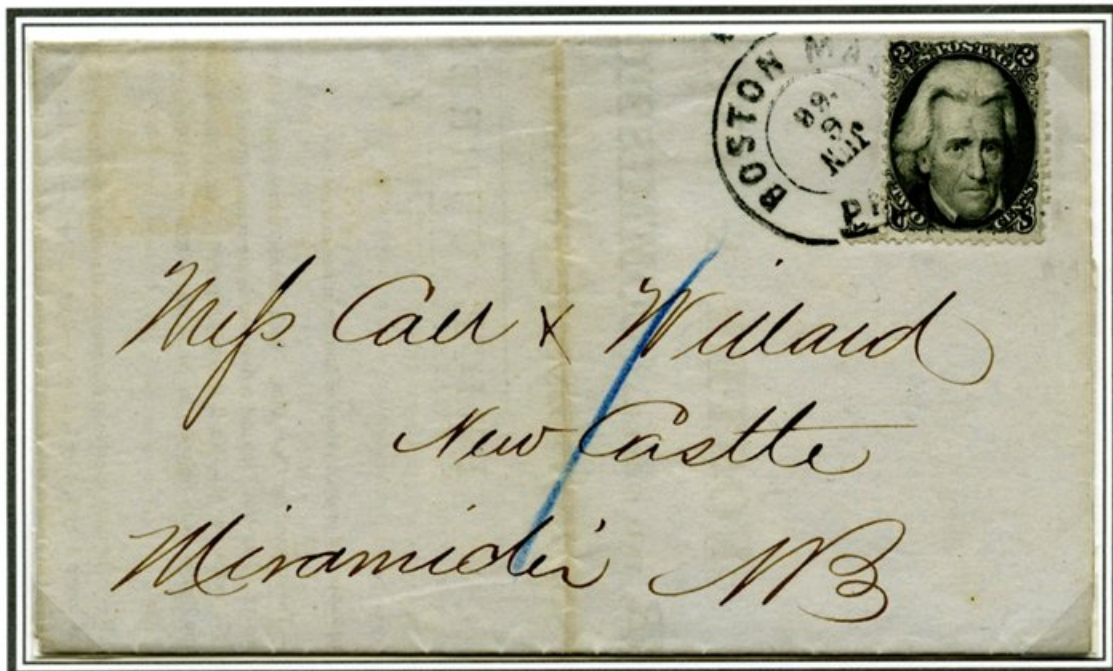 BOSTON MAS
JUN
6
'68
PA
2 2
U.S. POSTAGE
Mess. Carr & Willard
New Castle
Miramichi NB